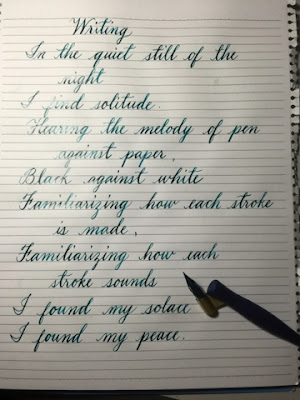 Writing
In the quiet still of the
night
I find solitude.
Hearing the melody of pen
against paper,
Black against white
Familiarizing how each stroke
is made,
Familiarizing how each
stroke sounds
I found my solace
I found my peace.